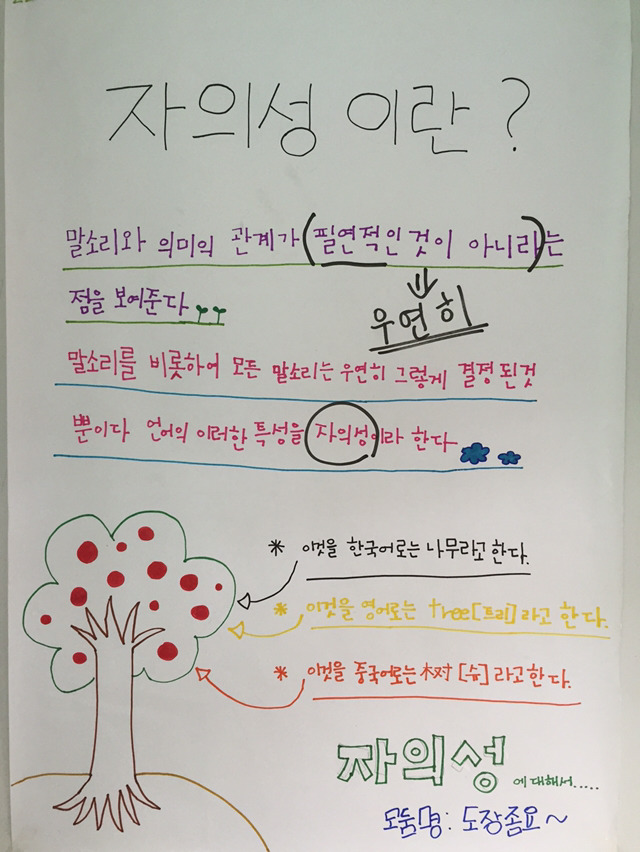 자의성 이란?
말소리와 의미의 관계가 (필연적인 것이 아니라)는
점을 보여준다
우연히
말소리를 비롯하여 모든 말소리는 우연히 그렇게 결정 된것
뿐이다 언어의 이러한 특성을 자의성이라 한다
* 이것을 한국어로는 나무라고 한다.
* 이것을 영어로는 tree[트리]라고 한다.
* 이것을 중국어로는 树 [슈] 라고한다.
자의성 에 대해서.....
모둠명: 도장좀요~